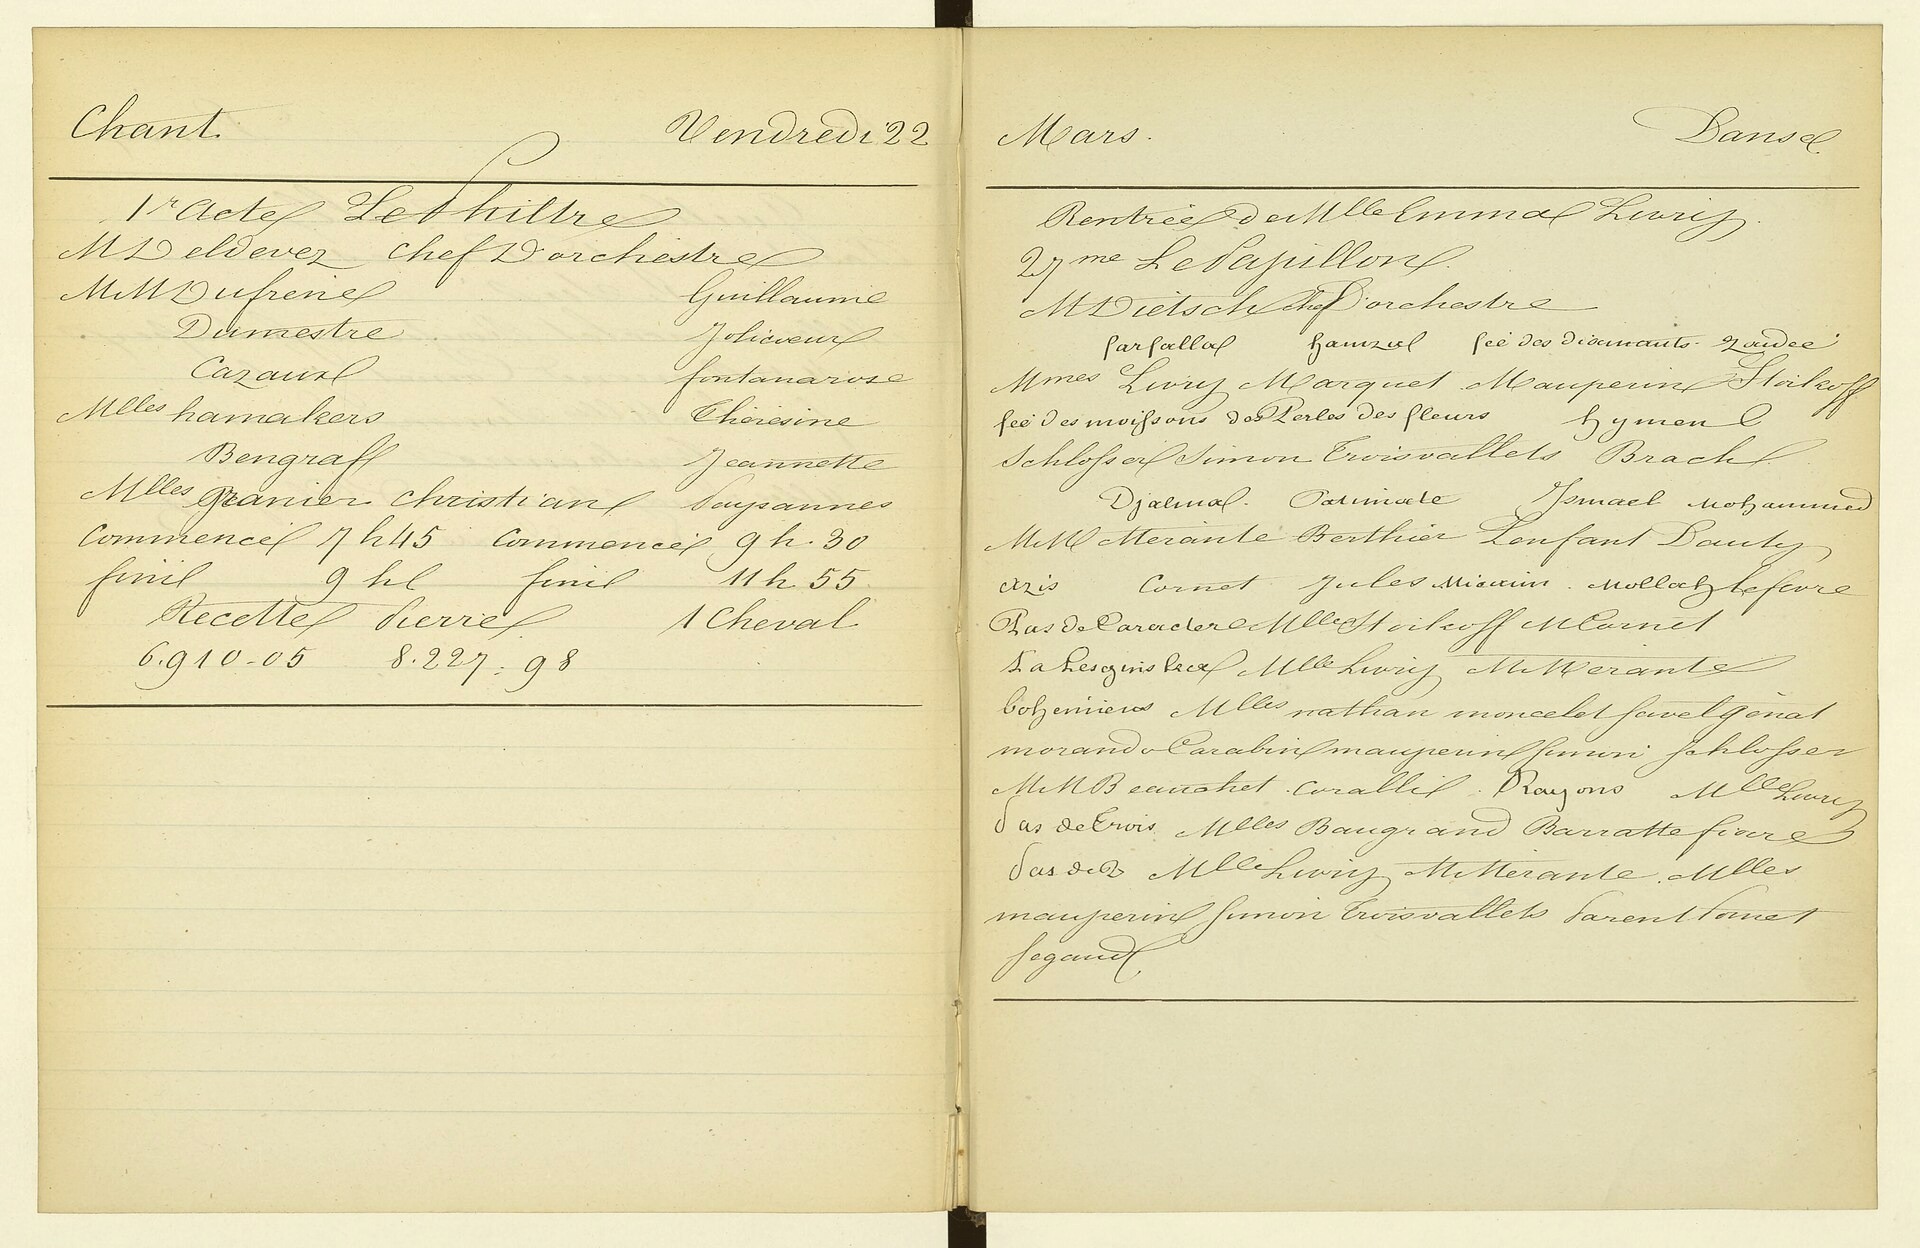 Chant. Vendredi 22
1r acte Le Philtre
M Deldevez chef D'orchestre
MM Dufrene Guillaume
Dumestre Jolicoeur
Cazaux fontanarose
Mlles hamakers Thérésine
Bengraff Jeannette
Mlles Granier Christian Paysannes
Commencé 7 h 45 Commencé 9 h. 30
fini 9 h fini 11 h 55
Recette Pierre 1 Cheval
6.910-05 8.227: 98
Mars. Danse
Rentrée de Mlle Emma Livry.
27me Le Papillon.
M Dietsch chef D'orchestre
farfalla hamza fée des diamants. Zaidée
Mmes Livry Marquet Mauperin Stoikoff
fée des moissons des Perles des fleurs hymen
Schlosser Simon Troisvallets Brach
Djalma. Patimate Ismael Mohammed
MM Merante Berthier Lenfant Dauty
azis Cornet Jules Mollah lefevre
Pas de Caractere Mlle Stoikoff M Cornet
La Lesginska Mlle Livry M Merante
bohemiens Mlles nathan moncelet savel génat
morando Carabin mauperin simon schlosser
MM Beauchet. Coralli. Rayons Mlle Livry
Pas de Trois Mlles Baugrand Barratte fiocre
Pas de 2 Mlle Livry M Mérante. Mlles
mauperin simon Troisvallets Parent
segaud